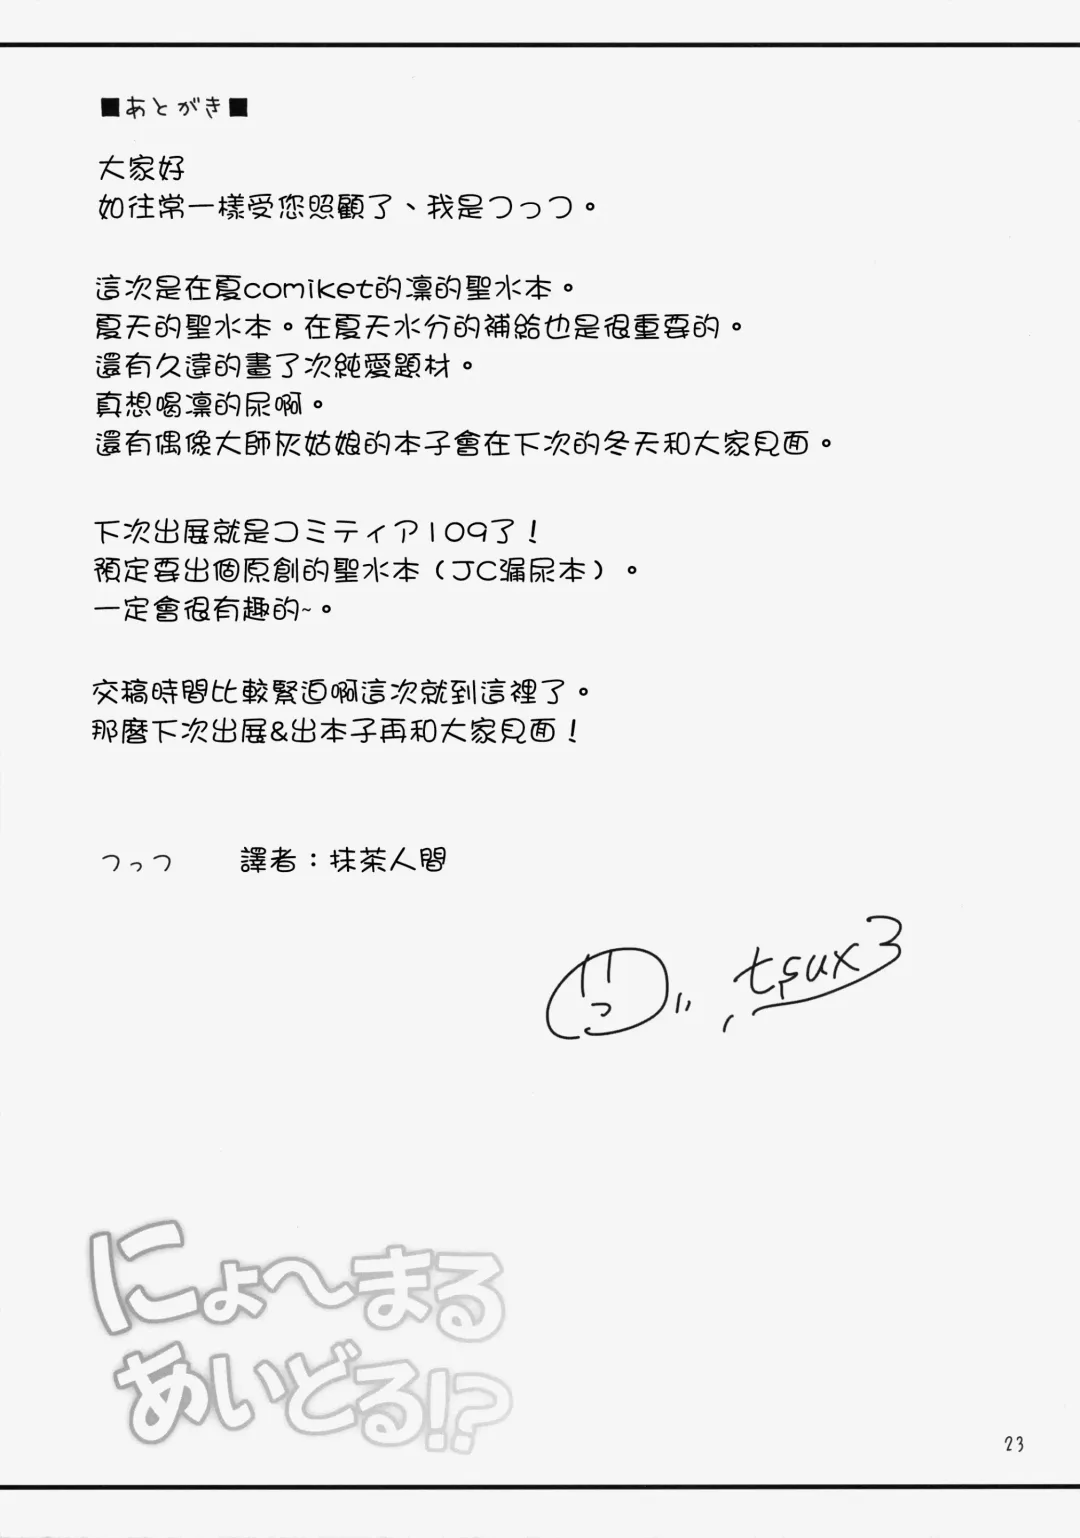 ■あとがき■
大家好
如往常一樣受您照顧了、我是つっつ。
這次是在夏comiket的凛的聖水本。
夏天的聖水本。在夏天水分的補給也是很重要的。
還有久違的畫了次純愛題材。
真想喝凛的尿啊。
還有偶像大師灰姑娘的本子會在下次的冬天和大家見面。
下次出展就是コミティア109了！
預定要出個原創的聖水本（JC漏尿本）。
一定會很有趣的~。
交稿時間比較緊迫啊這次就到這裡了。
那麼下次出展&出本子再和大家見面！
つっつ 譯者：抹茶人間
tsux3
にょ〜まる
あいどる!?
23